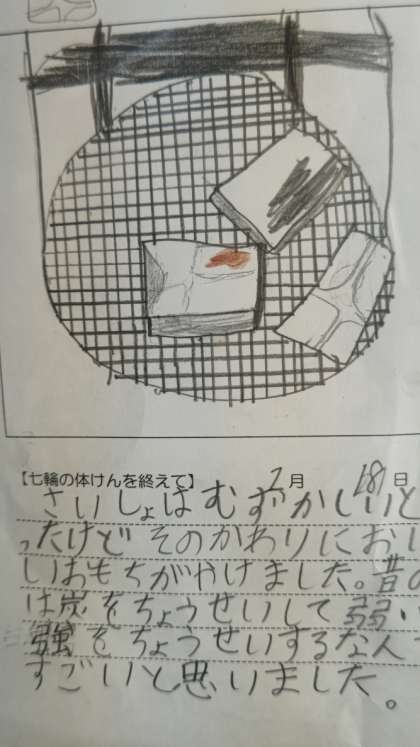 【七輪の体けんを終えて】 2月 18日
さいしょはむずかしいと
ったけどそのかわりにおい
しいおもちがやけました。昔の
は炭をちょうせいして弱・
強をちょうせいするなん
すごいと思いました。